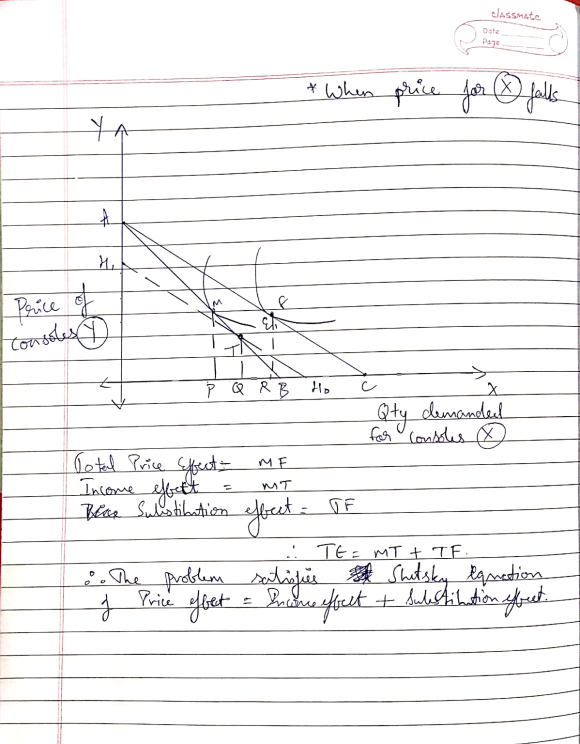 classmate
Date
Page
* When price for X falls
Y
A
H₁
Price of
consoles Y
M
F
E₁
T
P Q R B H₀ C
X
Qty demanded
for consoles X
Total Price Effect = MF
Income effect = MT
Substitution effect = TF
∴ TE = MT + TF.
∴ The problem satisfies Slutsky Equation
of Price effect = Income effect + Substitution effect.